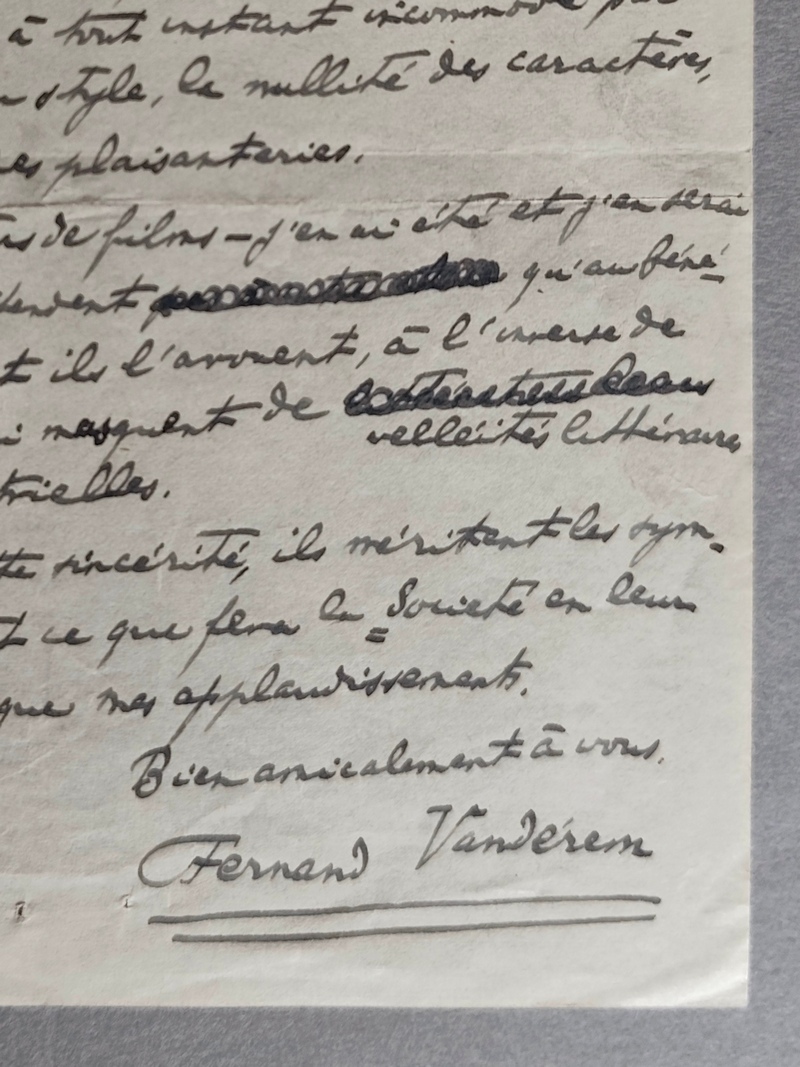 à tout instant incommodé par
style, la nullité des caractères,
es plaisanteries.
rs de films – j'en ai été et j'en serai
tendent qu'au béné-
t ils l'avouent, à l'inverse de
i masquent de
velléités littéraires
trielles.
tte sincérité, ils méritent les sym-
t ce que fera la Société en leur
que mes applaudissements.
Bien amicalement à vous.
Fernand Vandérem